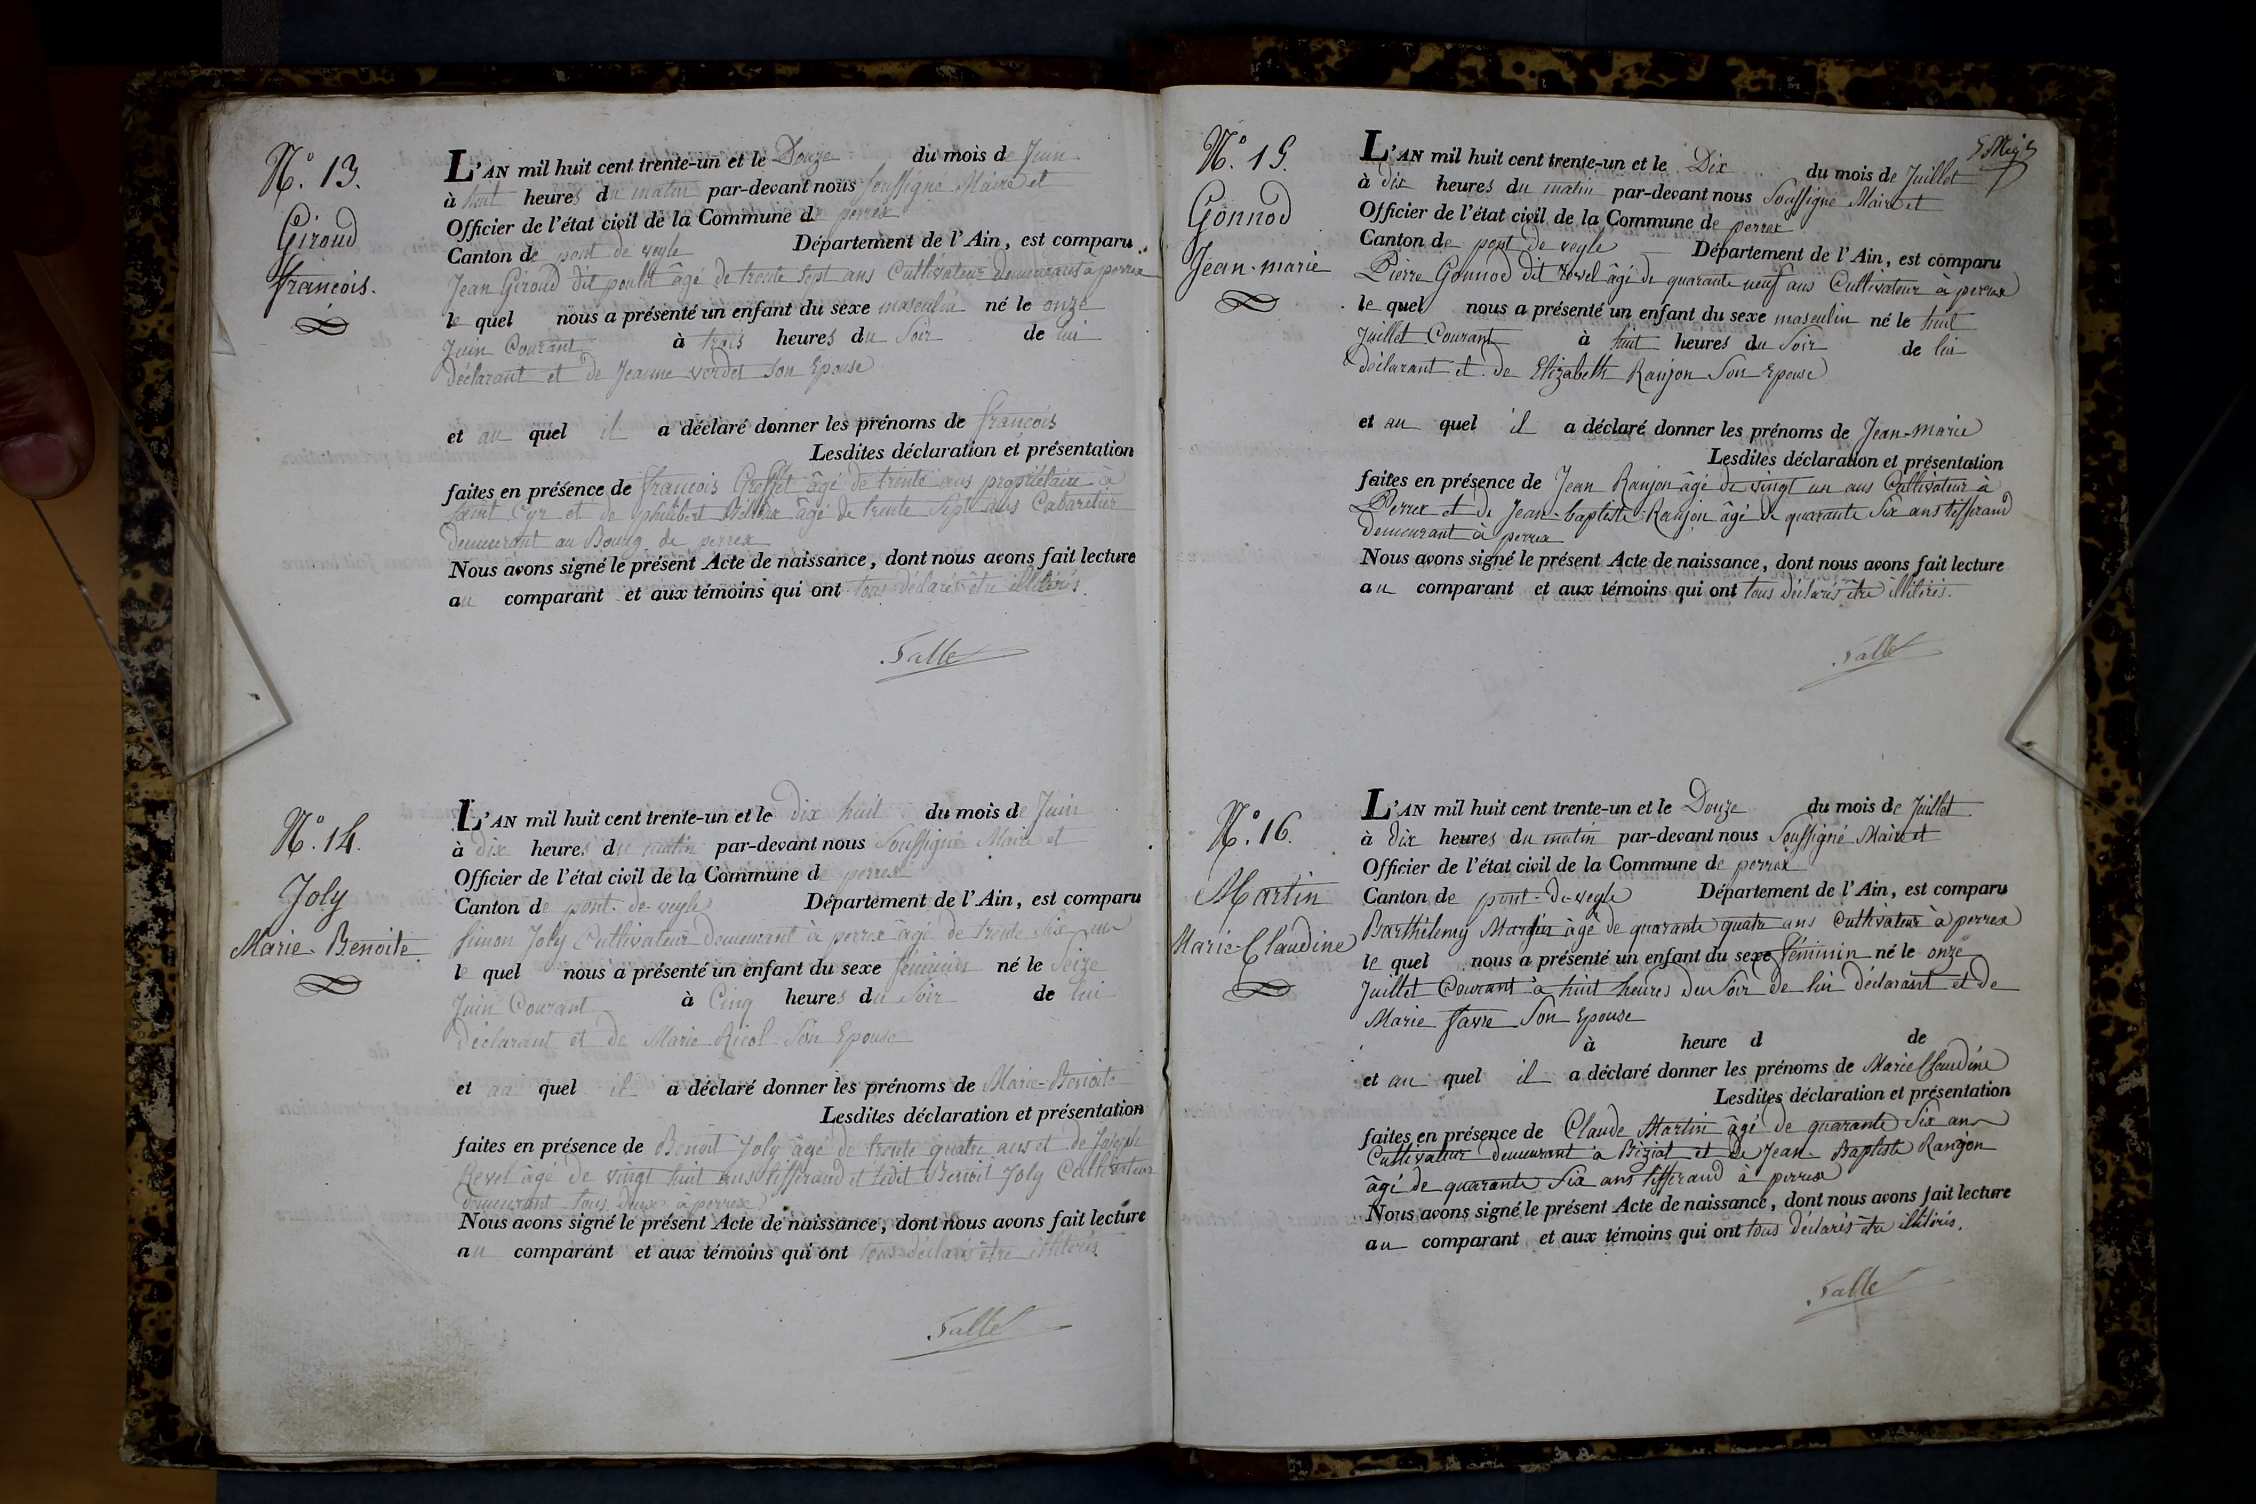 N.° 13.
Giroud
francois.
L'AN mil huit cent trente-un et le Douze du mois de Juin
à huit heures du matin par-devant nous soussigné Maire et
Officier de l'état civil de la Commune de perrex
Canton de pont de veyle Département de l'Ain, est comparu
Jean Giroud dit poulit âgé de trente sept ans Cultivateur demeurant à perrex
le quel nous a présenté un enfant du sexe masculin né le onze
Juin Courant à trois heures du Soir de lui
déclarant et de Jeanne verdet Son Epouse
et au quel il a déclaré donner les prénoms de francois
Lesdites déclaration et présentation
faites en présence de francois Groffet âgé de trente ans propriétaire à
Saint Cyr et de philibert âgé de trente Sept ans Cabaretier
demeurant au Bourg de perrex
Nous avons signé le présent Acte de naissance, dont nous avons fait lecture
au comparant et aux témoins qui ont tous déclarés être illitérés.
Salle
N.° 14.
Joly
Marie-Benoite
L'AN mil huit cent trente-un et le dix huit du mois de Juin
à dix heures du matin par-devant nous Soussigné Maire et
Officier de l'état civil de la Commune de perrex
Canton de pont-de-veyle Département de l'Ain, est comparu
Simon Joly Cultivateur demeurant à perrex âgé de trente six ans
le quel nous a présenté un enfant du sexe féminin né le Seize
Juin Courant à Cinq heures du Soir de lui
déclarant et de Marie Ricol Son Epouse
et au quel il a déclaré donner les prénoms de Marie-Benoite
Lesdites déclaration et présentation
faites en présence de Benoit Joly âgé de trente quatre ans et de Joseph
Revel âgé de vingt huit ans tisserand et ledit Benoit Joly Cultivateur
demeurant tous deux à perrex
Nous avons signé le présent Acte de naissance, dont nous avons fait lecture
au comparant et aux témoins qui ont tous déclarés être illitérés.
Salle
N.° 15.
Gonnod
Jean-marie
L'AN mil huit cent trente-un et le Dix du mois de Juillet
à dix heures du matin par-devant nous Soussigné Maire et
Officier de l'état civil de la Commune de perrex
Canton de pont de veyle Département de l'Ain, est comparu
Pierre Gonnod dit âgé de quarante neuf ans Cultivateur à perrex
le quel nous a présenté un enfant du sexe masculin né le huit
Juillet Courant à huit heures du Soir de lui
déclarant et de Elizabeth Ranjon Son Epouse
et au quel il a déclaré donner les prénoms de Jean-Marie
Lesdites déclaration et présentation
faites en présence de Jean Ranjon âgé de vingt un ans Cultivateur à
Perrex et de Jean-baptiste Ranjon âgé de quarante Six ans tisserand
demeurant à perrex
Nous avons signé le présent Acte de naissance, dont nous avons fait lecture
au comparant et aux témoins qui ont tous déclarés être illitérés.
Salle
N.° 16.
Martin
Marie-Claudine
L'AN mil huit cent trente-un et le Douze du mois de Juillet
à dix heures du matin par-devant nous Soussigné Maire et
Officier de l'état civil de la Commune de perrex
Canton de pont-de-veyle Département de l'Ain, est comparu
Barthélemy Martin âgé de quarante quatre ans Cultivateur à perrex
le quel nous a présenté un enfant du sexe féminin né le onze
Juillet Courant à huit heures du Soir de lui déclarant et de
Marie favre Son Epouse
à heure d de
et au quel il a déclaré donner les prénoms de Marie Claudine
Lesdites déclaration et présentation
faites en présence de Claude Martin âgé de quarante Six ans
Cultivateur demeurant à Biziat et de Jean-Baptiste Ranjon
âgé de quarante Six ans tisserand à perrex
Nous avons signé le présent Acte de naissance, dont nous avons fait lecture
au comparant et aux témoins qui ont tous déclarés être illitérés.
Salle